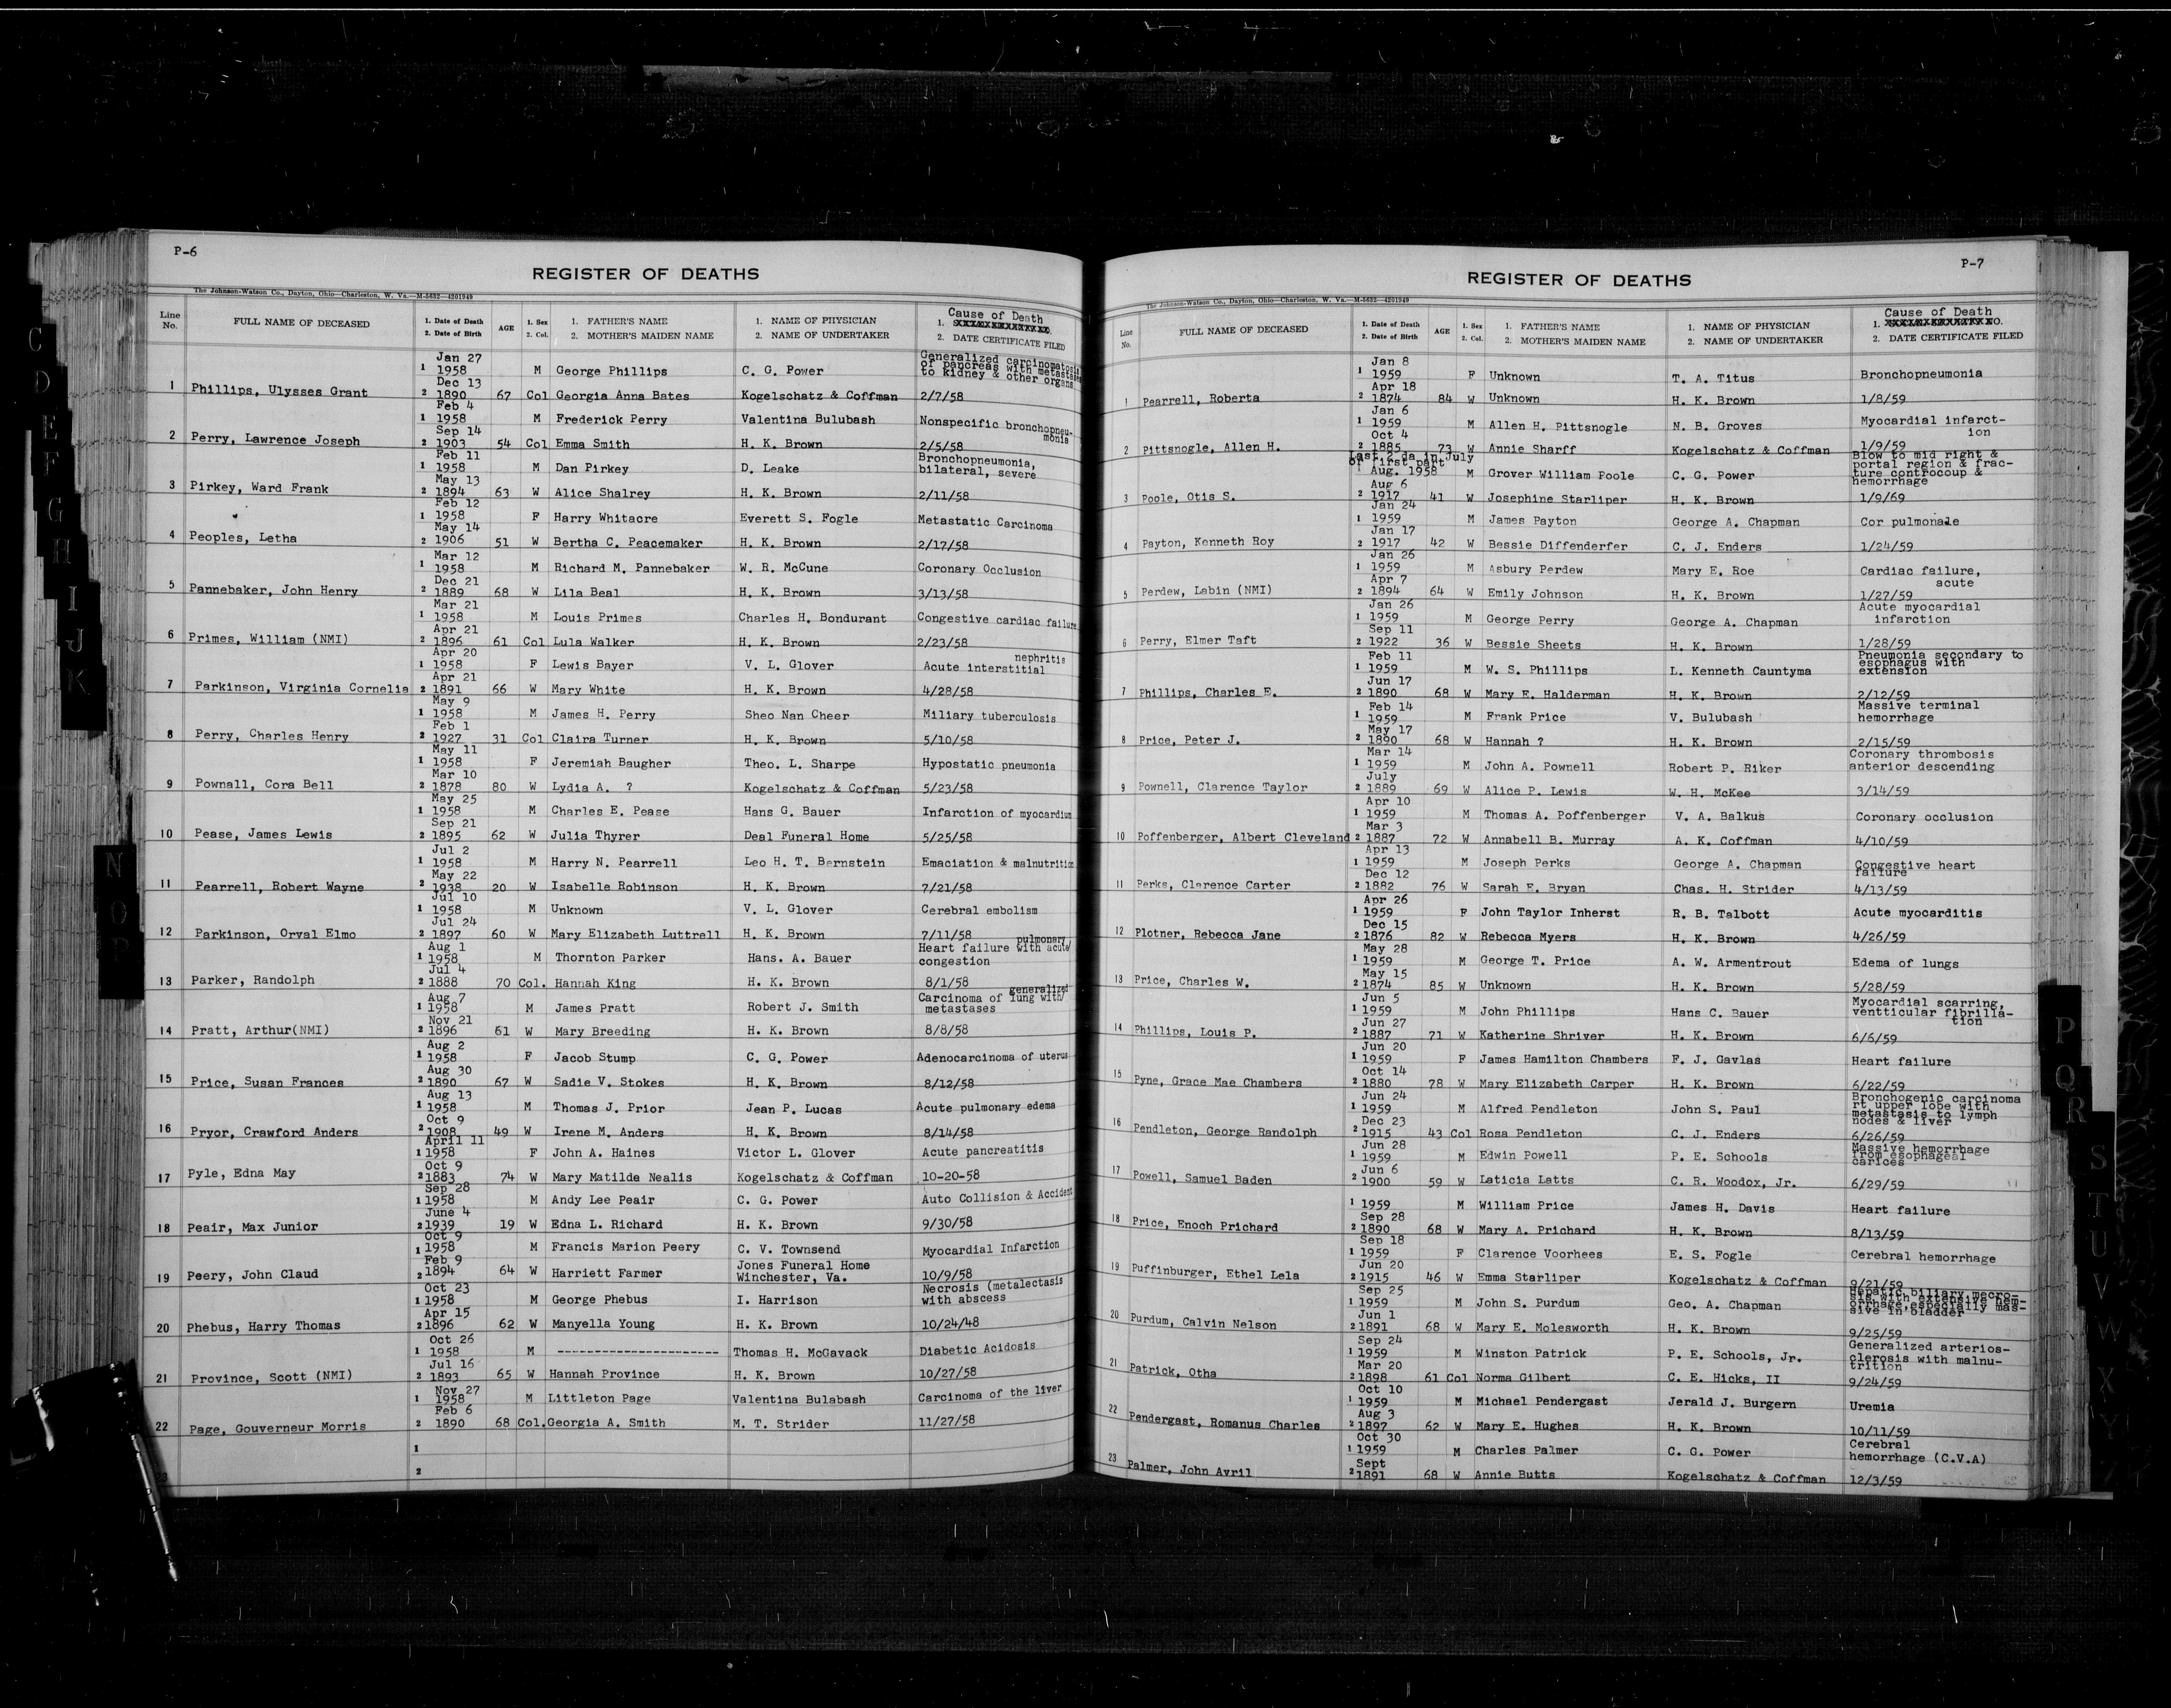 P-6
REGISTER OF DEATHS
The Johnson-Watson Co., Dayton, Ohio—Charleston, W. Va.—M-5632—4201949
Line No. FULL NAME OF DECEASED 1. Date of Death 2. Date of Birth AGE 1. Sex 2. Col. 1. FATHER'S NAME 2. MOTHER'S MAIDEN NAME 1. NAME OF PHYSICIAN 2. NAME OF UNDERTAKER Cause of Death 1. 2. DATE CERTIFICATE FILED
Jan 27
1 1958 M George Phillips C. G. Power Generalized carcinomatosis of pancreas with metastases to kidney & other organs
Dec 13
1 Phillips, Ulysses Grant 2 1890 67 Col Georgia Anna Bates Kogelschatz & Coffman 2/7/58
Feb 4
1 1958 M Frederick Perry Valentina Bulubash Nonspecific bronchopneu-monia
Sep 14
2 Perry, Lawrence Joseph 2 1903 54 Col Emma Smith H. K. Brown 2/5/58
Feb 11
1 1958 M Dan Pirkey D. Leake Bronchopneumonia, bilateral, severe
May 13
3 Pirkey, Ward Frank 2 1894 63 W Alice Shalrey H. K. Brown 2/11/58
Feb 12
1 1958 F Harry Whitacre Everett S. Fogle Metastatic Carcinoma
May 14
4 Peoples, Letha 2 1906 51 W Bertha C. Peacemaker H. K. Brown 2/17/58
Mar 12
1 1958 M Richard M. Pannebaker W. R. McCune Coronary Occlusion
Dec 21
5 Pannebaker, John Henry 2 1889 68 W Lila Beal H. K. Brown 3/13/58
Mar 21
1 1958 M Louis Primes Charles H. Bondurant Congestive cardiac failure
Apr 21
6 Primes, William (NMI) 2 1896 61 Col Lula Walker H. K. Brown 2/23/58
Apr 20
1 1958 F Lewis Bayer V. L. Glover Acute interstitial nephritis
Apr 21
7 Parkinson, Virginia Cornelia 2 1891 66 W Mary White H. K. Brown 4/28/58
May 9
1 1958 M James H. Perry Sheo Nan Cheer Miliary tuberculosis
Feb 1
8 Perry, Charles Henry 2 1927 31 Col Claira Turner H. K. Brown 5/10/58
May 11
1 1958 F Jeremiah Baugher Theo. L. Sharpe Hypostatic pneumonia
Mar 10
9 Pownall, Cora Bell 2 1878 80 W Lydia A. ? Kogelschatz & Coffman 5/23/58
May 25
1 1958 M Charles E. Pease Hans G. Bauer Infarction of myocardium
Sep 21
10 Pease, James Lewis 2 1895 62 W Julia Thyrer Deal Funeral Home 5/25/58
Jul 2
1 1958 M Harry N. Pearrell Leo H. T. Bernstein Emaciation & malnutrition
May 22
11 Pearrell, Robert Wayne 2 1938 20 W Isabelle Robinson H. K. Brown 7/21/58
Jul 10
1 1958 M Unknown V. L. Glover Cerebral embolism
Jul 24
12 Parkinson, Orval Elmo 2 1897 60 W Mary Elizabeth Luttrell H. K. Brown 7/11/58
Aug 1
1 1958 M Thornton Parker Hans. A. Bauer Heart failure with acute/ pulmonary congestion
Jul 4
13 Parker, Randolph 2 1888 70 Col. Hannah King H. K. Brown 8/1/58
Aug 7
1 1958 M James Pratt Robert J. Smith Carcinoma of lung with/ generalized metastases
Nov 21
14 Pratt, Arthur(NMI) 2 1896 61 W Mary Breeding H. K. Brown 8/8/58
Aug 2
1 1958 F Jacob Stump C. G. Power Adenocarcinoma of uterus
Aug 30
15 Price, Susan Frances 2 1890 67 W Sadie V. Stokes H. K. Brown 8/12/58
Aug 13
1 1958 M Thomas J. Prior Jean P. Lucas Acute pulmonary edema
Oct 9
16 Pryor, Crawford Anders 2 1908 49 W Irene M. Anders H. K. Brown 8/14/58
April 11
1 1958 F John A. Haines Victor L. Glover Acute pancreatitis
Oct 9
17 Pyle, Edna May 2 1883 74 W Mary Matilda Nealis Kogelschatz & Coffman 10-20-58
Sep 28
1 1958 M Andy Lee Peair C. G. Power Auto Collision & Accident
June 4
18 Peair, Max Junior 2 1939 19 W Edna L. Richard H. K. Brown 9/30/58
Oct 9
1 1958 M Francis Marion Peery C. V. Townsend Myocardial Infarction
Feb 9
19 Peery, John Claud 2 1894 64 W Harriett Farmer Jones Funeral Home Winchester, Va. 10/9/58
Oct 23
1 1958 M George Phebus I. Harrison Necrosis (metalectasis with abscess
Apr 15
20 Phebus, Harry Thomas 2 1896 62 W Manyella Young H. K. Brown 10/24/48
Oct 26
1 1958 M ---------------------- Thomas H. McGavack Diabetic Acidosis
Jul 16
21 Province, Scott (NMI) 2 1893 65 W Hannah Province H. K. Brown 10/27/58
Nov 27
1 1958 M Littleton Page Valentina Bulabash Carcinoma of the liver
Feb 6
22 Page, Gouverneur Morris 2 1890 68 Col. Georgia A. Smith M. T. Strider 11/27/58
1
23 2
P-7
REGISTER OF DEATHS
The Johnson-Watson Co., Dayton, Ohio—Charleston, W. Va.—M-5632—4201949
Line No. FULL NAME OF DECEASED 1. Date of Death 2. Date of Birth AGE 1. Sex 2. Col. 1. FATHER'S NAME 2. MOTHER'S MAIDEN NAME 1. NAME OF PHYSICIAN 2. NAME OF UNDERTAKER Cause of Death 1. NO. 2. DATE CERTIFICATE FILED
Jan 8
1 1959 F Unknown T. A. Titus Bronchopneumonia
Apr 18
1 Pearrell, Roberta 2 1874 84 W Unknown H. K. Brown 1/8/59
Jan 6
1 1959 M Allen H. Pittsnogle N. B. Groves Myocardial infarct-ion
Oct 4
2 Pittsnogle, Allen H. 2 1885 73 W Annie Sharff Kogelschatz & Coffman 1/9/59
Last 2 da in July
or first part
1 Aug. 1958 M Grover William Poole C. G. Power Blow to mid right & portal region & frac-ture controcoup & hemorrhage
Aug 6
3 Poole, Otis S. 2 1917 41 W Josephine Starliper H. K. Brown 1/9/69
Jan 24
1 1959 M James Payton George A. Chapman Cor pulmonale
Jan 17
4 Payton, Kenneth Roy 2 1917 42 W Bessie Diffenderfer C. J. Enders 1/24/59
Jan 26
1 1959 M Asbury Perdew Mary E. Roe Cardiac failure, acute
Apr 7
5 Perdew, Labin (NMI) 2 1894 64 W Emily Johnson H. K. Brown 1/27/59
Jan 26
1 1959 M George Perry George A. Chapman Acute myocardial infarction
Sep 11
6 Perry, Elmer Taft 2 1922 36 W Bessie Sheets H. K. Brown 1/28/59
Feb 11
1 1959 M W. S. Phillips L. Kenneth Cauntyma Pneumonia secondary to esophagus with extension
Jun 17
7 Phillips, Charles E. 2 1890 68 W Mary E. Halderman H. K. Brown 2/12/59
Feb 14
1 1959 M Frank Price V. Bulubash Massive terminal hemorrhage
May 17
8 Price, Peter J. 2 1890 68 W Hannah ? H. K. Brown 2/15/59
Mar 14
1 1959 M John A. Pownell Robert P. Riker Coronary thrombosis anterior descending
July
9 Pownell, Clarence Taylor 2 1889 69 W Alice P. Lewis W. H. McKee 3/14/59
Apr 10
1 1959 M Thomas A. Poffenberger V. A. Balkus Coronary occlusion
Mar 3
10 Poffenberger, Albert Cleveland 2 1887 72 W Annabell B. Murray A. K. Coffman 4/10/59
Apr 13
1 1959 M Joseph Perks George A. Chapman Congestive heart failure
Dec 12
11 Perks, Clarence Carter 2 1882 76 W Sarah E. Bryan Chas. H. Strider 4/13/59
Apr 26
1 1959 F John Taylor Inherst R. B. Talbott Acute myocarditis
Dec 15
12 Plotner, Rebecca Jane 2 1876 82 W Rebecca Myers H. K. Brown 4/26/59
May 28
1 1959 M George T. Price A. W. Armentrout Edema of lungs
May 15
13 Price, Charles W. 2 1874 85 W Unknown H. K. Brown 5/28/59
Jun 5
1 1959 M John Phillips Hans C. Bauer Myocardial scarring, ventticular fibrilla-tion
Jun 27
14 Phillips, Louis P. 2 1887 71 W Katherine Shriver H. K. Brown 6/6/59
Jun 20
1 1959 F James Hamilton Chambers F. J. Gavlas Heart failure
Oct 14
15 Pyne, Grace Mae Chambers 2 1880 78 W Mary Elizabeth Carper H. K. Brown 6/22/59
Jun 24
1 1959 M Alfred Pendleton John S. Paul Bronchogenic carcinoma rt upper lobe with metastasis to lymph nodes & liver
Dec 23
16 Pendleton, George Randolph 2 1915 43 Col Rosa Pendleton C. J. Enders 6/26/59
Jun 28
1 1959 M Edwin Powell P. E. Schools Massive hemorrhage from esophageal carices
Jun 6
17 Powell, Samuel Baden 2 1900 59 W Laticia Latts C. R. Woodox, Jr. 6/29/59
1 1959 M William Price James H. Davis Heart failure
Sep 28
18 Price, Enoch Prichard 2 1890 68 W Mary A. Prichard H. K. Brown 8/13/59
Sep 18
1 1959 F Clarence Voorhees E. S. Fogle Cerebral hemorrhage
Jun 20
19 Puffinburger, Ethel Lela 2 1915 46 W Emma Starliper Kogelschatz & Coffman 9/21/59
Sep 25
1 1959 M John S. Purdum Geo. A. Chapman Hepatic biliary mecro-sis with extensive hem-orrhage, especially mas-sive in bladder
Jun 1
20 Purdum, Calvin Nelson 2 1891 68 W Mary E. Molesworth H. K. Brown 9/25/59
Sep 24
1 1959 M Winston Patrick P. E. Schools, Jr. Generalized arterios-clerosis with malnu-trition
Mar 20
21 Patrick, Otha 2 1898 61 Col Norma Gilbert C. E. Hicks, II 9/24/59
Oct 10
1 1959 M Michael Pendergast Jerald J. Burgern Uremia
Aug 3
22 Pendergast, Romanus Charles 2 1897 62 W Mary E. Hughes H. K. Brown 10/11/59
Oct 30
1 1959 M Charles Palmer C. G. Power Cerebral hemorrhage (C.V.A)
Sept
23 Palmer, John Avril 2 1891 68 W Annie Butts Kogelschatz & Coffman 12/3/59
C
D
E
F
G
H
I
J
K
N
O
P
P
Q
R
S
T
U
V
W
X
Y